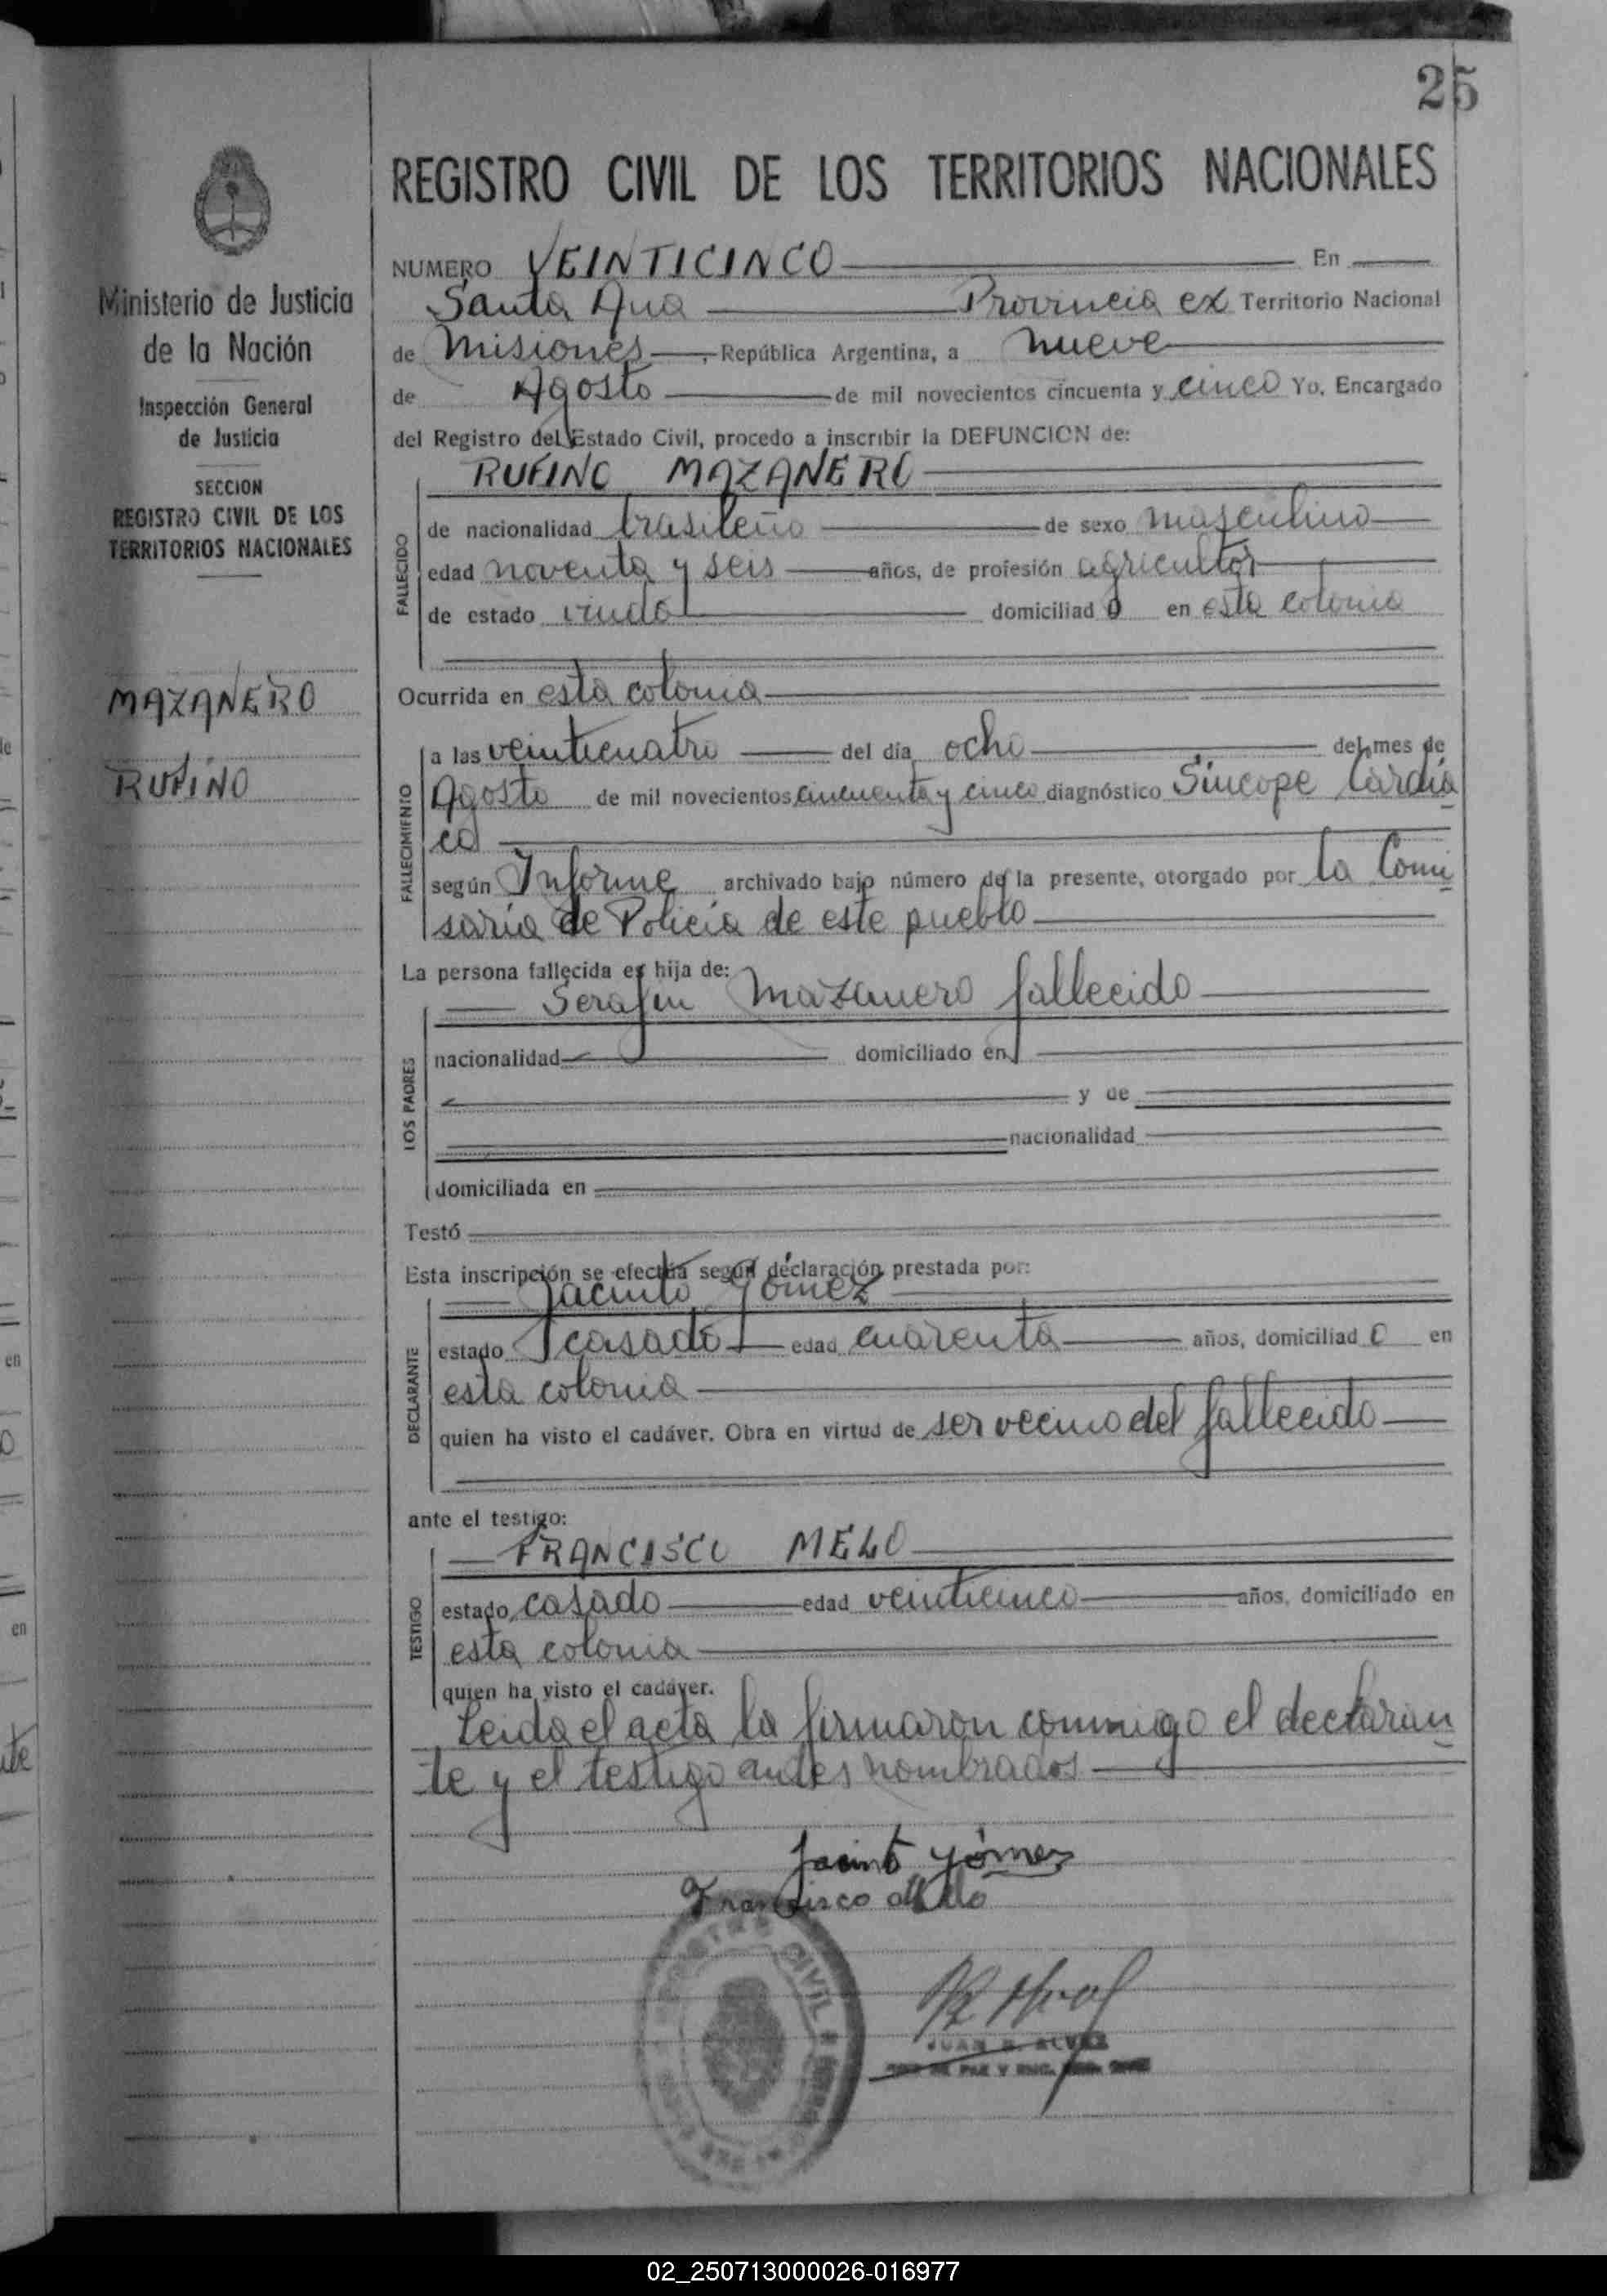 25
REGISTRO CIVIL DE LOS TERRITORIOS NACIONALES
Ministerio de Justicia
de la Nación
Inspección General
de Justicia
SECCION
REGISTRO CIVIL DE LOS
TERRITORIOS NACIONALES
MAZANERO
RUFINO
NUMERO VEINTICINCO En
Santa Ana Provincia ex Territorio Nacional
de Misiones, República Argentina, a nueve
de Agosto de mil novecientos cincuenta y cinco Yo, Encargado
del Registro del Estado Civil, procedo a inscribir la DEFUNCION de:
RUFINO MAZANERO
FALLECIDO
de nacionalidad brasileño de sexo masculino
edad noventa y seis años, de profesión agricultor
de estado viudo domiciliado en esta colonia
Ocurrida en esta colonia
FALLECIMIENTO
a las veinticuatro del día ocho del mes de
Agosto de mil novecientos cincuenta y cinco diagnóstico Síncope Cardía
co
según Informe archivado bajo número de la presente, otorgado por la Comi
saría de Policía de este pueblo
La persona fallecida es hija de:
Serafín Mazanero fallecido
LOS PADRES
nacionalidad domiciliado en
y de
nacionalidad
domiciliada en
Testó
Esta inscripción se efectúa según declaración prestada por:
Jacinto Gómez
DECLARANTE
estado casado edad cuarenta años, domiciliado en
esta colonia
quien ha visto el cadáver. Obra en virtud de ser vecino del fallecido
ante el testigo:
FRANCISCO MELO
TESTIGO
estado casado edad veinticinco años, domiciliado en
esta colonia
quien ha visto el cadáver.
Leida el acta la firmaron conmigo el declaran
te y el testigo antes nombrados
Jacinto Gómez
Francisco Melo
REGISTRO CIVIL
JUAN ALVEZ
DE PAZ Y ENC.
02_250713000026-016977